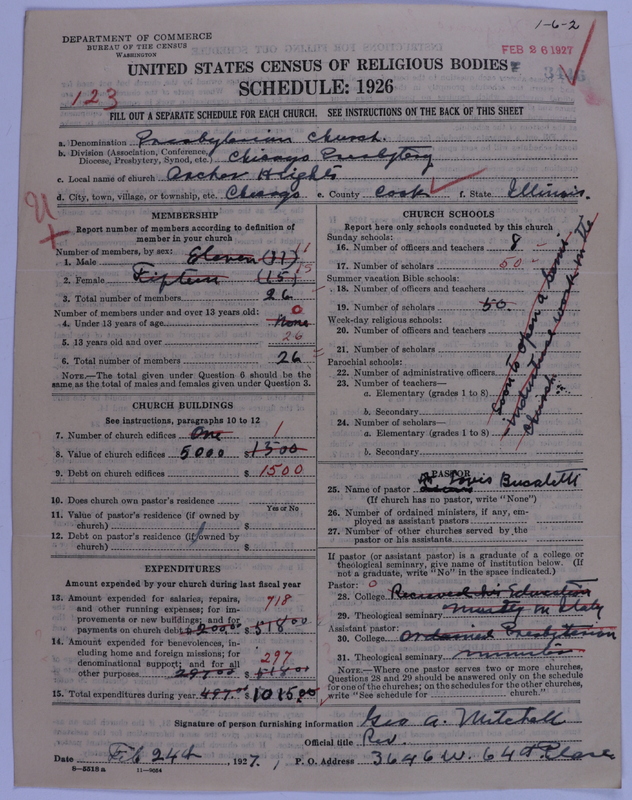 1-6-2
DEPARTMENT OF COMMERCE
BUREAU OF THE CENSUS
WASHINGTON
FEB 26 1927
UNITED STATES CENSUS OF RELIGIOUS BODIES
SCHEDULE: 1926
123
FILL OUT A SEPARATE SCHEDULE FOR EACH CHURCH. SEE INSTRUCTIONS ON THE BACK OF THIS SHEET
a. Denomination Presbyterian Church.
b. Division (Association, Conference, Diocese, Presbytery, Synod, etc.) Chicago Presbytery
c. Local name of church Archer Heights
d. City, town, village, or township, etc. Chicago e. County Cook f. State Illinois.
MEMBERSHIP
Report number of members according to definition of
member in your church
Number of members, by sex:
1. Male Eleven (11) 11
2. Female Fifteen (15) 15
3. Total number of members 26
Number of members under and over 13 years old:
4. Under 13 years of age None 0
5. 13 years old and over 26
6. Total number of members 26
NOTE.—The total given under Question 6 should be the
same as the total of males and females given under Question 3.
CHURCH BUILDINGS
See instructions, paragraphs 10 to 12
7. Number of church edifices One 1
8. Value of church edifices 5000 $ 1500
9. Debt on church edifices $ 1500
10. Does church own pastor's residence
Yes or No
11. Value of pastor's residence (if owned by
church) $
12. Debt on pastor's residence (if owned by
church) $
EXPENDITURES
Amount expended by your church during last fiscal year
13. Amount expended for salaries, repairs,
and other running expenses; for im-
provements or new buildings; and for
payments on church debt 200.00 $ 518.00 718
14. Amount expended for benevolences, in-
cluding home and foreign missions; for
denominational support; and for all
other purposes 297.00 $ 297
15. Total expenditures during year 497.00 $ 1015.00
CHURCH SCHOOLS
Report here only schools conducted by this church
Sunday schools:
16. Number of officers and teachers 8
17. Number of scholars 50
Summer vacation Bible schools:
18. Number of officers and teachers
19. Number of scholars 50.
Week-day religious schools:
20. Number of officers and teachers
21. Number of scholars
Parochial schools:
22. Number of administrative officers
23. Number of teachers—
a. Elementary (grades 1 to 8)
b. Secondary
24. Number of scholars—
a. Elementary (grades 1 to 8)
b. Secondary
Soon to open a
industrial work in the
church
PASTOR
25. Name of pastor Louis
(If church has no pastor, write "None")
26. Number of ordained ministers, if any, em-
ployed as assistant pastors
27. Number of other churches served by the
pastor or his assistants
If pastor (or assistant pastor) is a graduate of a college or
theological seminary, give name of institution below. (If
not a graduate, write "No" in the space indicated.)
Pastor: 0
28. College Recieved his Education
29. Theological seminary mostly in Italy
Assistant pastor:
30. College Ordained Presbyterian
31. Theological seminary minister
NOTE.—Where one pastor serves two or more churches,
Questions 28 and 29 should be answered only on the schedule
for one of the churches; on the schedules for the other churches,
write "See schedule for church."
Signature of person furnishing information Geo A. Mitchell
Official title Rev.
Date Feb 24th, 1927. P. O. Address 3646 W. 64th Place
8-5518a 11-9664